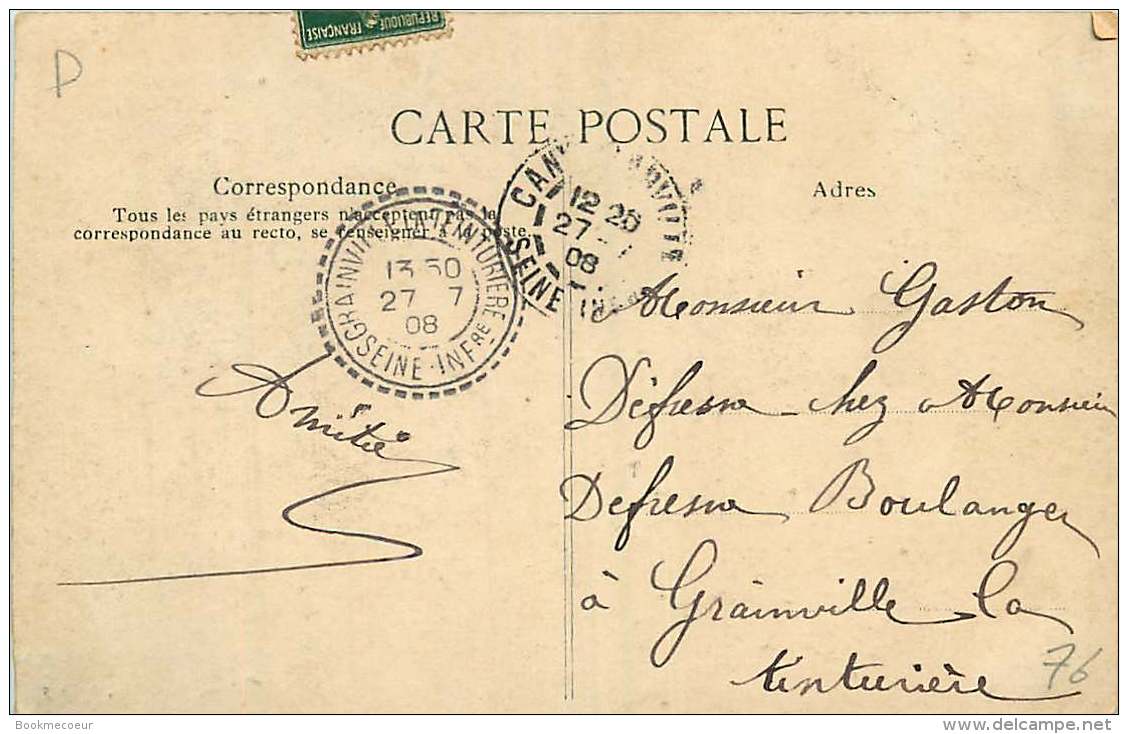 RÉPUBLIQUE FRANÇAISE
D
CARTE POSTALE
Correspondance
Tous les pays étrangers n'acceptent pas la
correspondance au recto, se renseigner à la poste.
Adres
GRAINVILLE-LA-TEINTURIERE
13 50
27 7
08
SEINE-INFRE
CAN
12 20
27
08
SEINE INF
Monsieur Gaston
Défresne chez Monsieur
Defresne Boulanger
à Grainville la
tinturière
Amitié
76
Bookmecoeur
delcampe.net